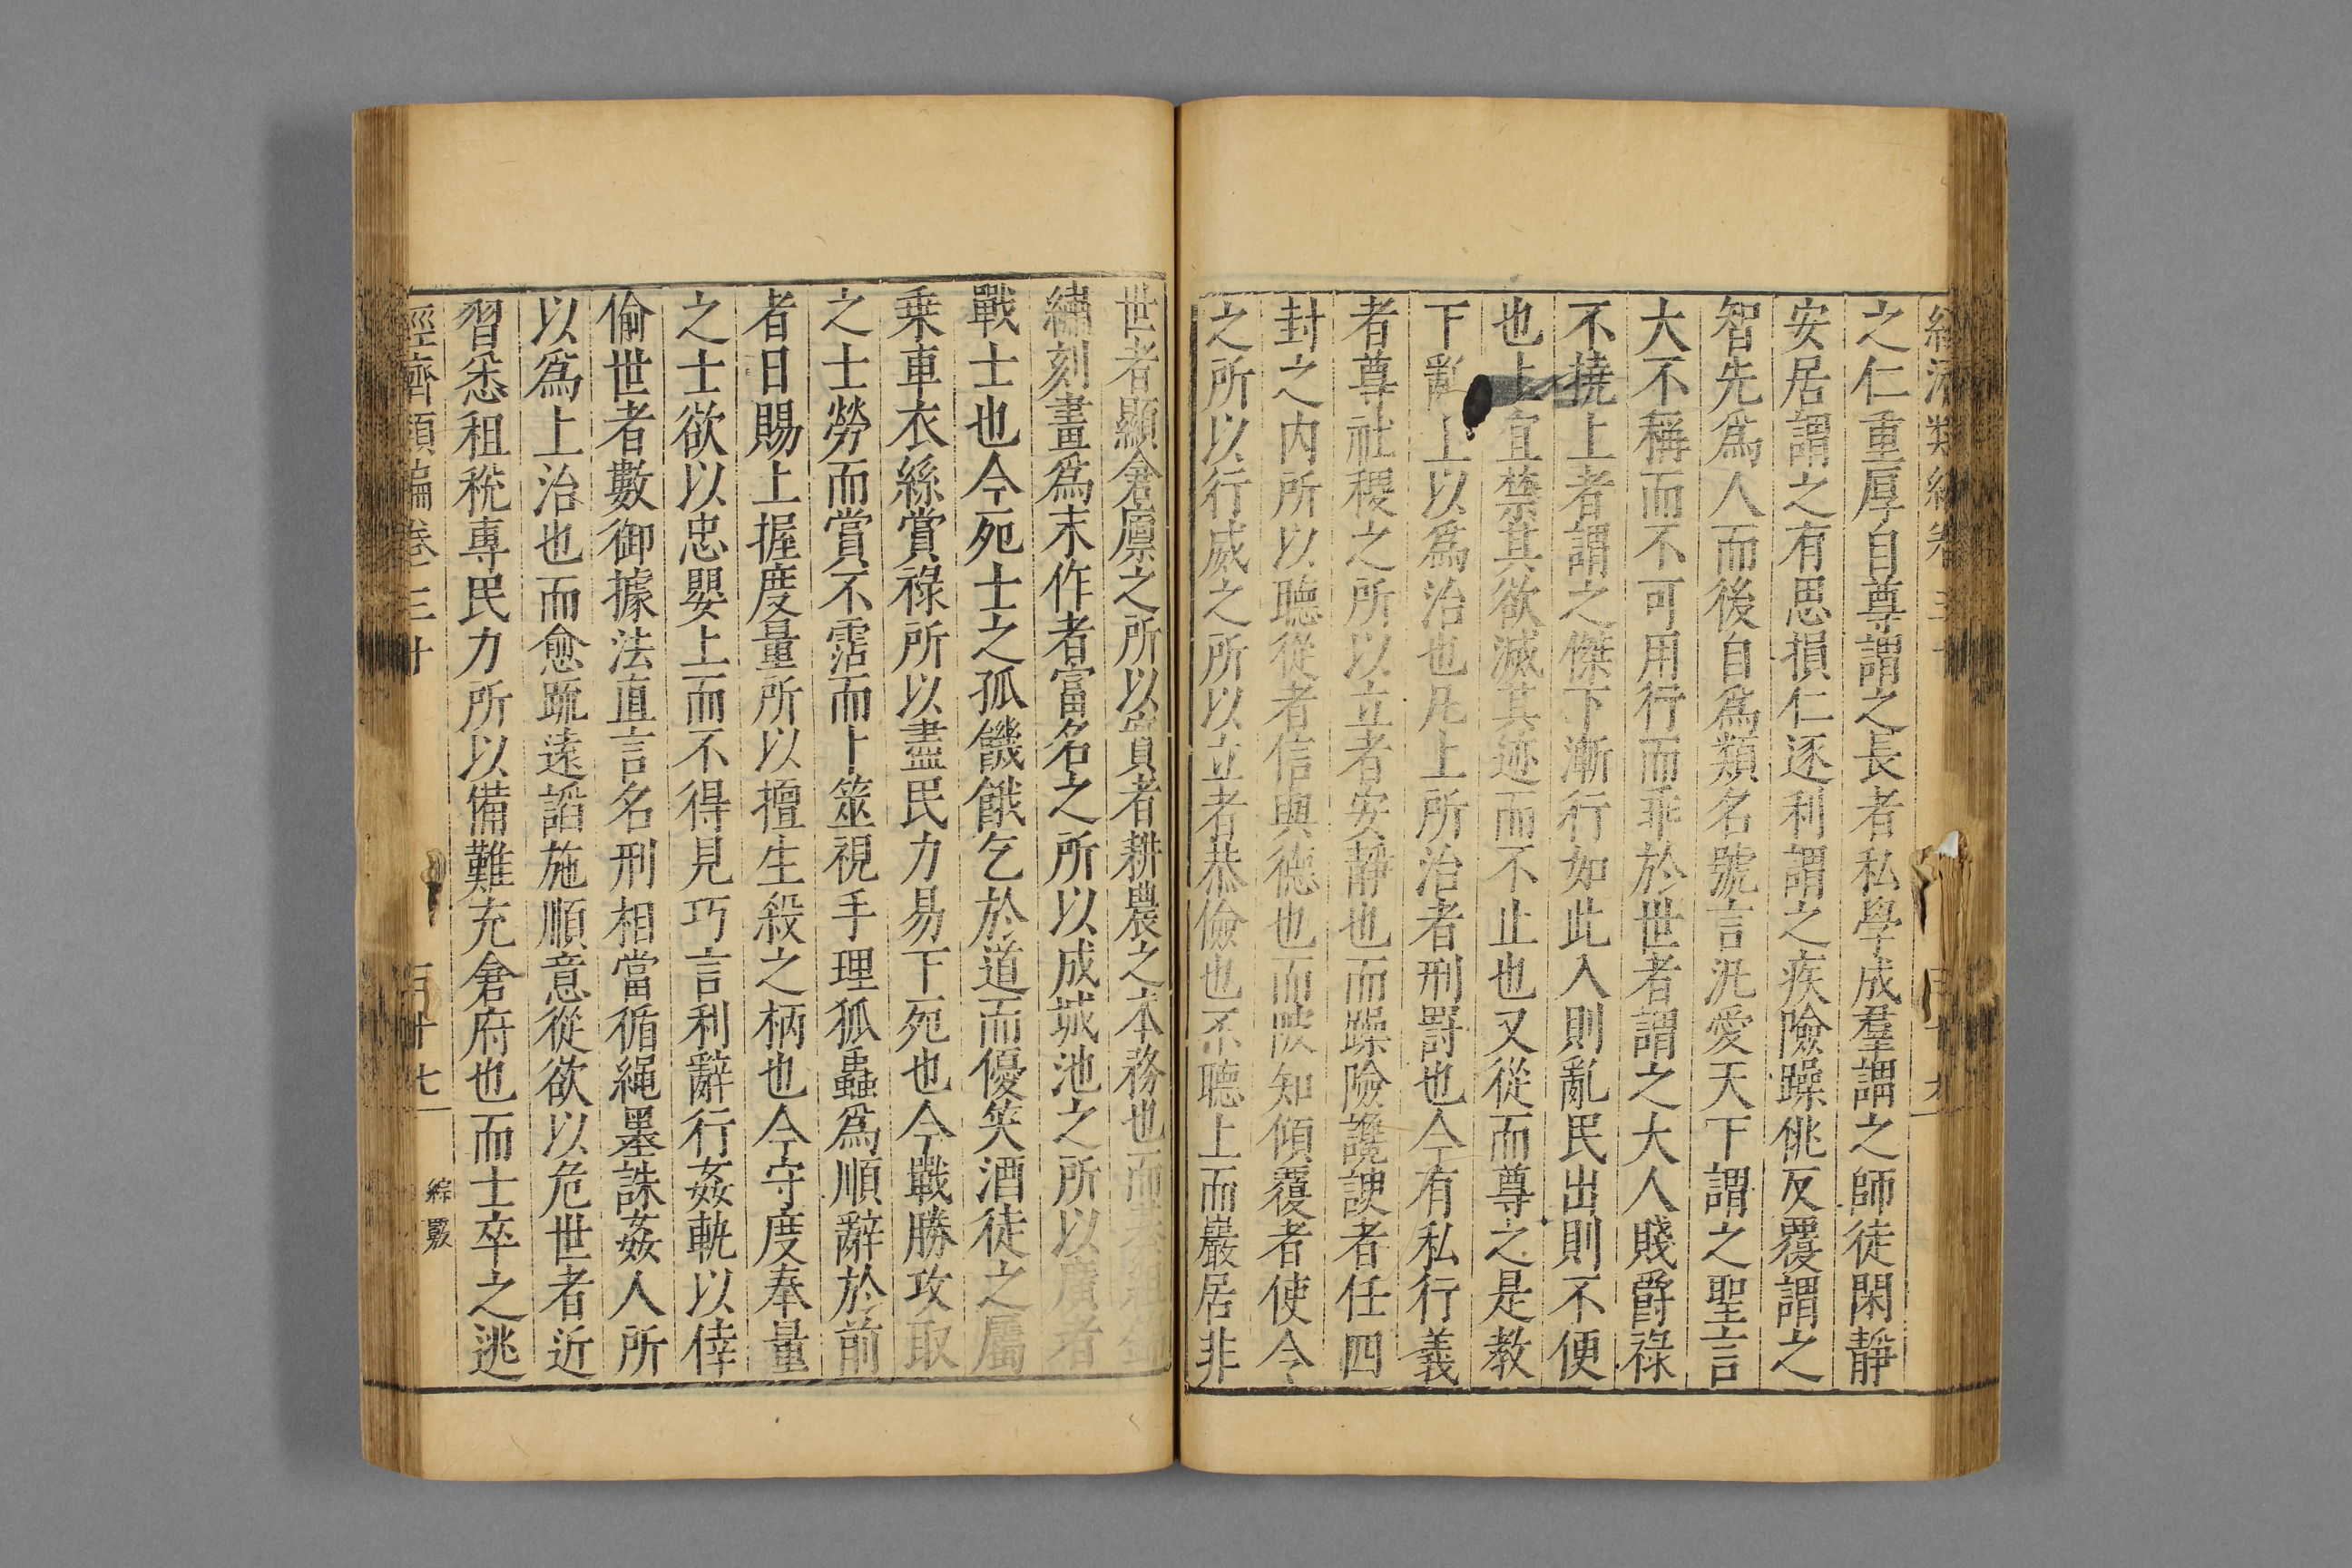 之仁重厚自尊謂之長者私學成羣謂之師徒閑靜
安居謂之有思損仁逐利謂之疾險躁佻反覆謂之
智先爲人而後自爲類名號言汎愛天下謂之聖言
大不稱而不可用行而乖於世者謂之大人賤爵祿
不撓上者謂之傑下漸行如此入則亂民出則不便
也上宜禁其欲滅其迹而不止也又從而尊之是教
下亂上以爲治也凡上所治者刑罸也今有私行義
者尊社稷之所以立者安靜也而躁險讒諛者任四
封之内所以聽從者信與德也而陂知傾覆者使令
之所以行威之所以立者恭儉也不聽上而巖居非
世者顯倉廪之所以實者耕農之本務也而
繡刻畫爲末作者富名之所以成城池之所以廣者
戰士也今死士之孤饑餓乞於道而優笑酒徒之屬
乗車衣絲賞祿所以盡民力易下死也今戰勝攻取
之士勞而賞不霑而卜筮視手理狐蟲爲順辭於前
者日賜上握度量所以擅生殺之柄也今守度奉量
之士欲以忠嬰上而不得見巧言利辭行姦軌以倖
偷世者數御據法直言名刑相當循繩墨誅姦人所
以爲上治也而愈疏遠謟施順意從欲以危世者近
習悉租稅專民力所以備難充倉府也而士卒之逃
經濟類編卷三十
百十七
綜覈